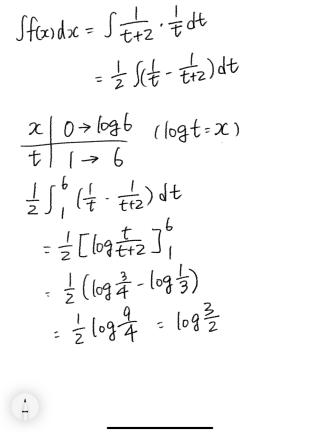 ∫f(x)dx = ∫ 1/(t+2) · 1/t dt
= 1/2 ∫(1/t - 1/(t+2)) dt
x | 0 → log6 (log t = x)
t | 1 → 6
1/2 ∫_1^6 (1/t - 1/(t+2)) dt
= 1/2 [log t/(t+2)]_1^6
= 1/2 (log 3/4 - log 1/3)
= 1/2 log 9/4 = log 3/2